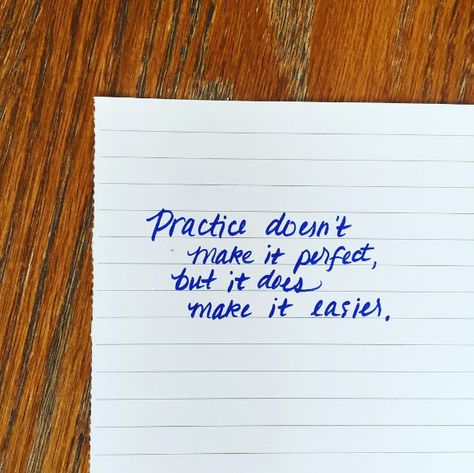 Practice doesn't
make it perfect,
but it does
make it easier.